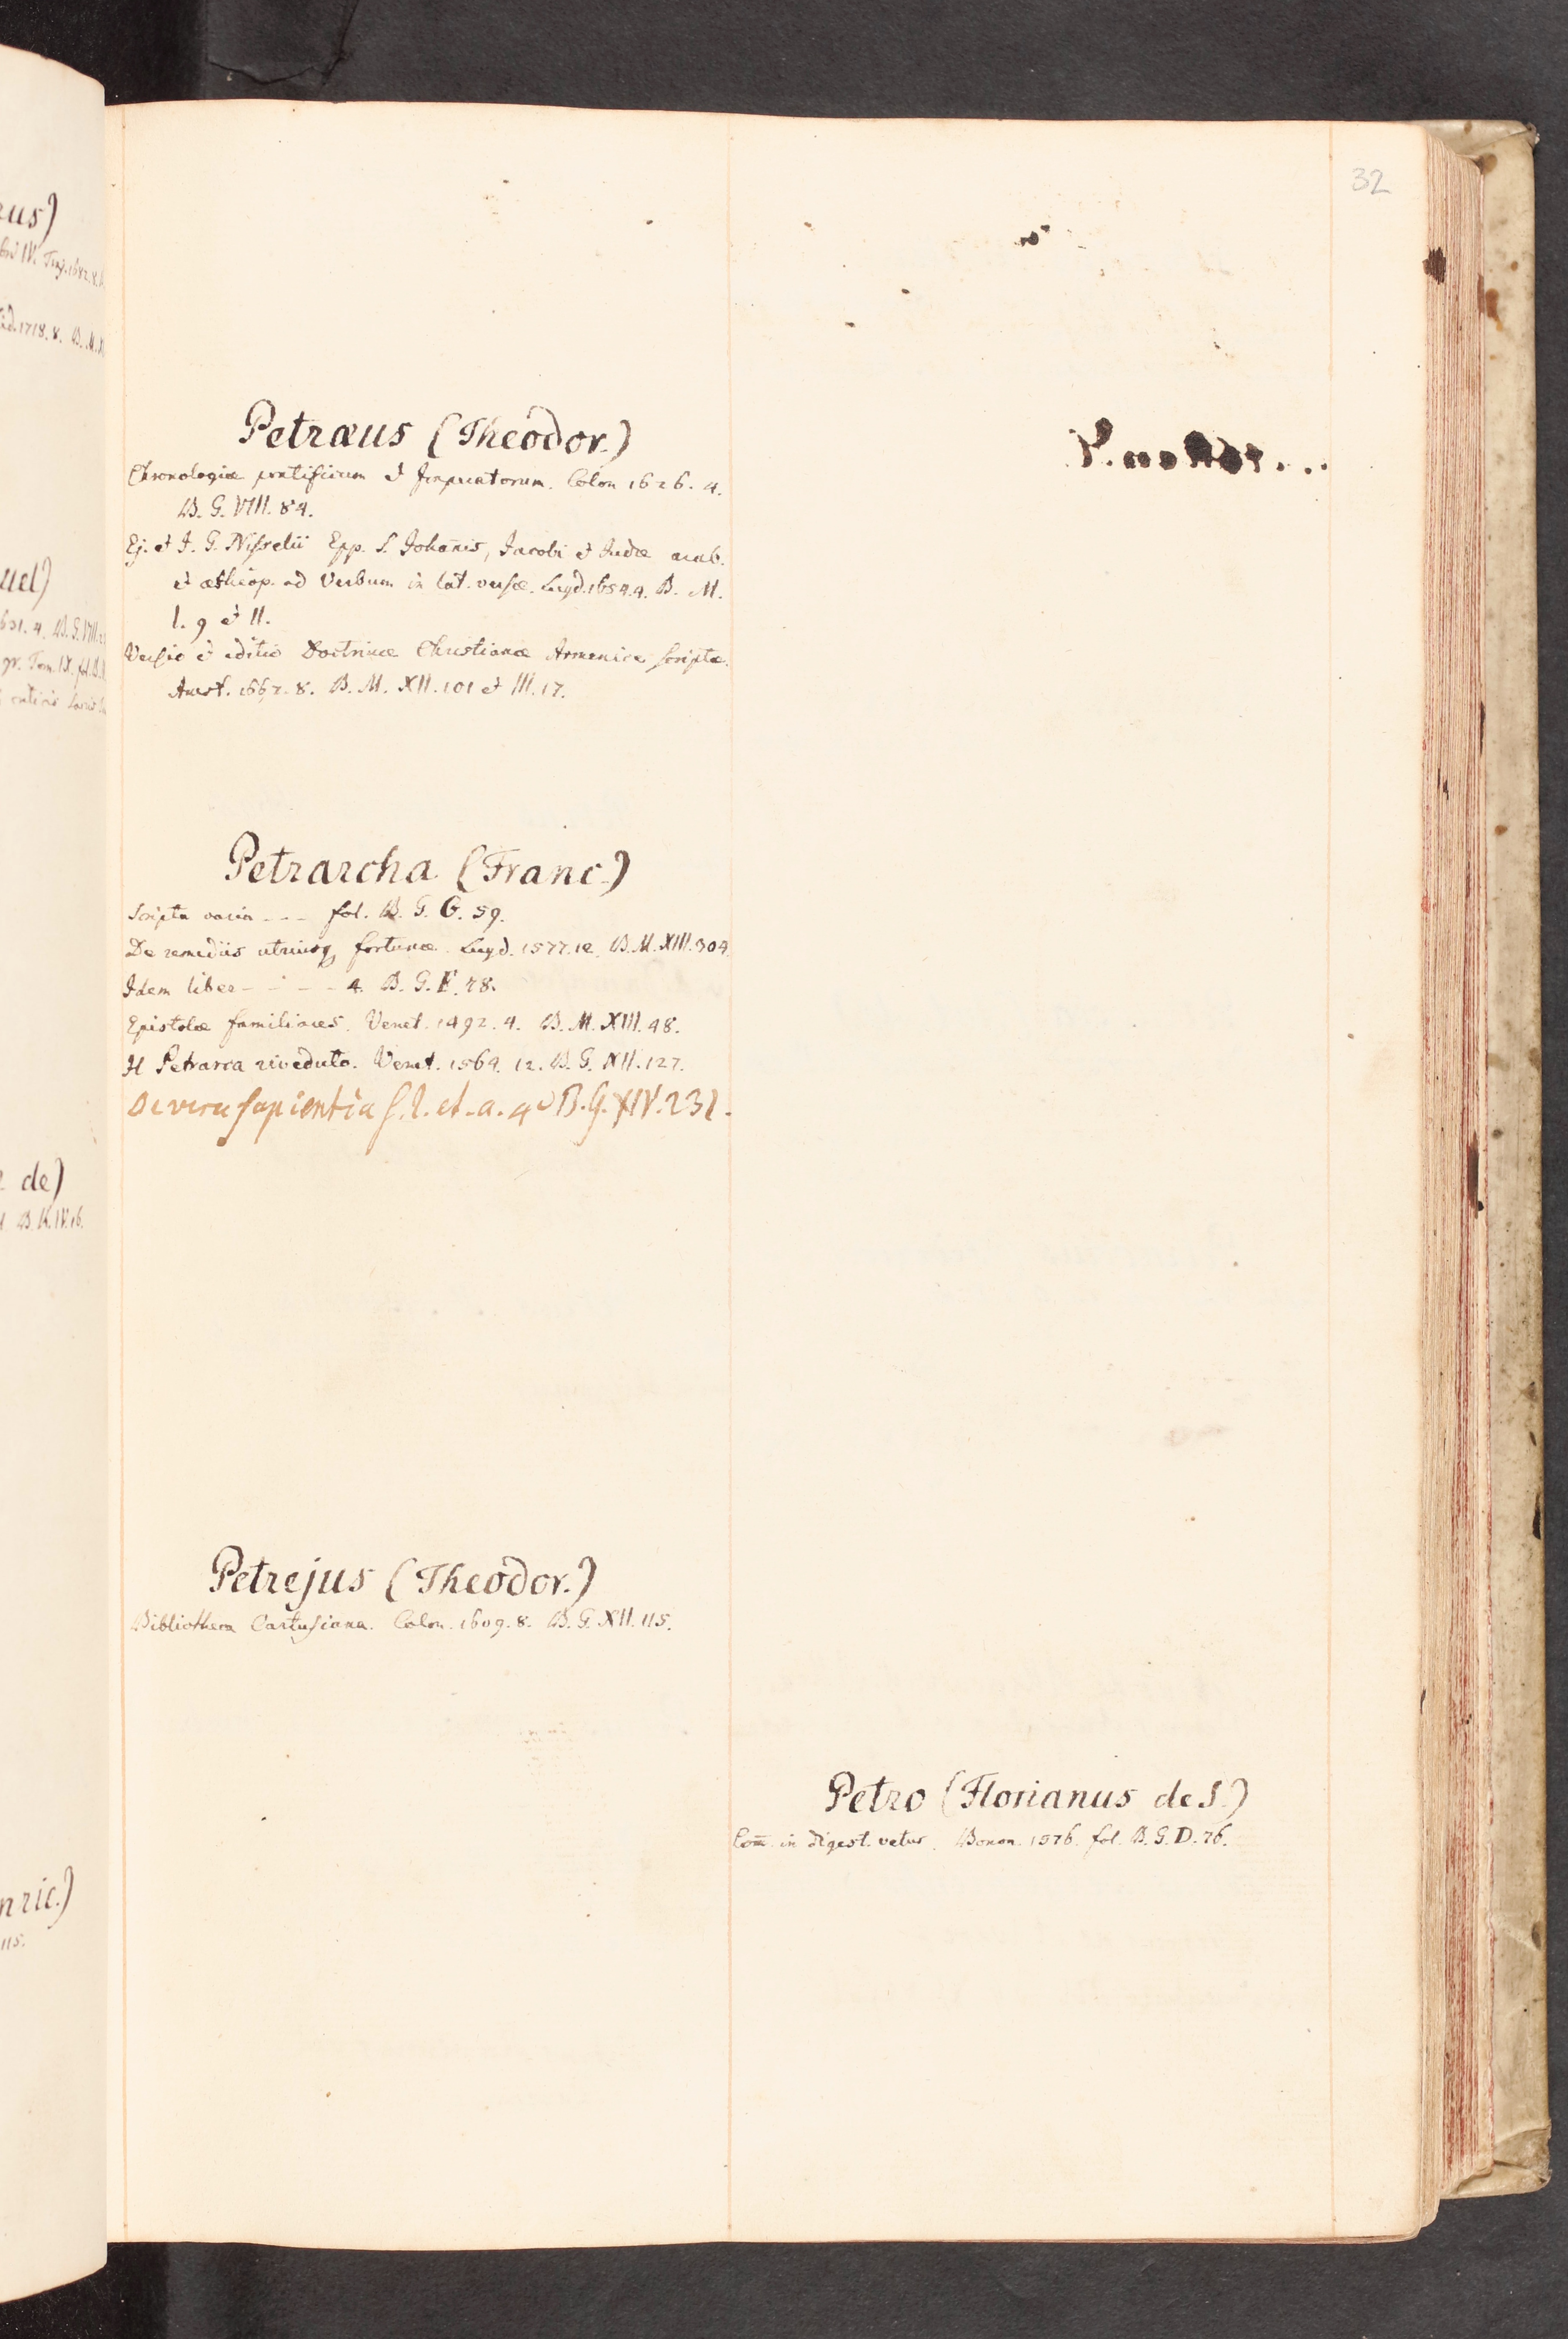 32
Petræus (Theodor.)
Chronologiæ pontificum et Imperatorum. Colon 1626. 4.
B. G. VIII. 84.
Ej. et I. G. Nisselii Epp. S. Johañis, Jacobi et Judæ arab.
et æthiop. ad Verbum in lat. versæ. Lugd. 1654. 4. B. M.
I. 9 et II.
Versio et editio Doctrinæ Christianæ Armenice scriptæ.
Amst. 1667. 8. B. M. XII. 101 et III. 17.
Petrarcha (Franc.)
Scripta varia - - - fol. B. G. G. 59.
De remediis utriusq fortunæ. Lugd. 1577. 12. B. M. XIII. 304.
Idem liber - - - - 4. B. G. F. 48.
Epistolæ familiares. Venet. 1492. 4. B. M. XIII. 48.
Il Petrarca riveduto. Venet. 1564. 12. B. G. XII. 127.
De vera sapientia s. l. et. a. 4º B. G. XIV. 231.
Petrejus (Theodor.)
Bibliotheca Cartusiana. Colon. 1609. 8. B. G. XII. 115.
Petro (Florianus de S.)
Com̄. in digest. vetus. Bonon. 1576. fol. B. G. D. 76.